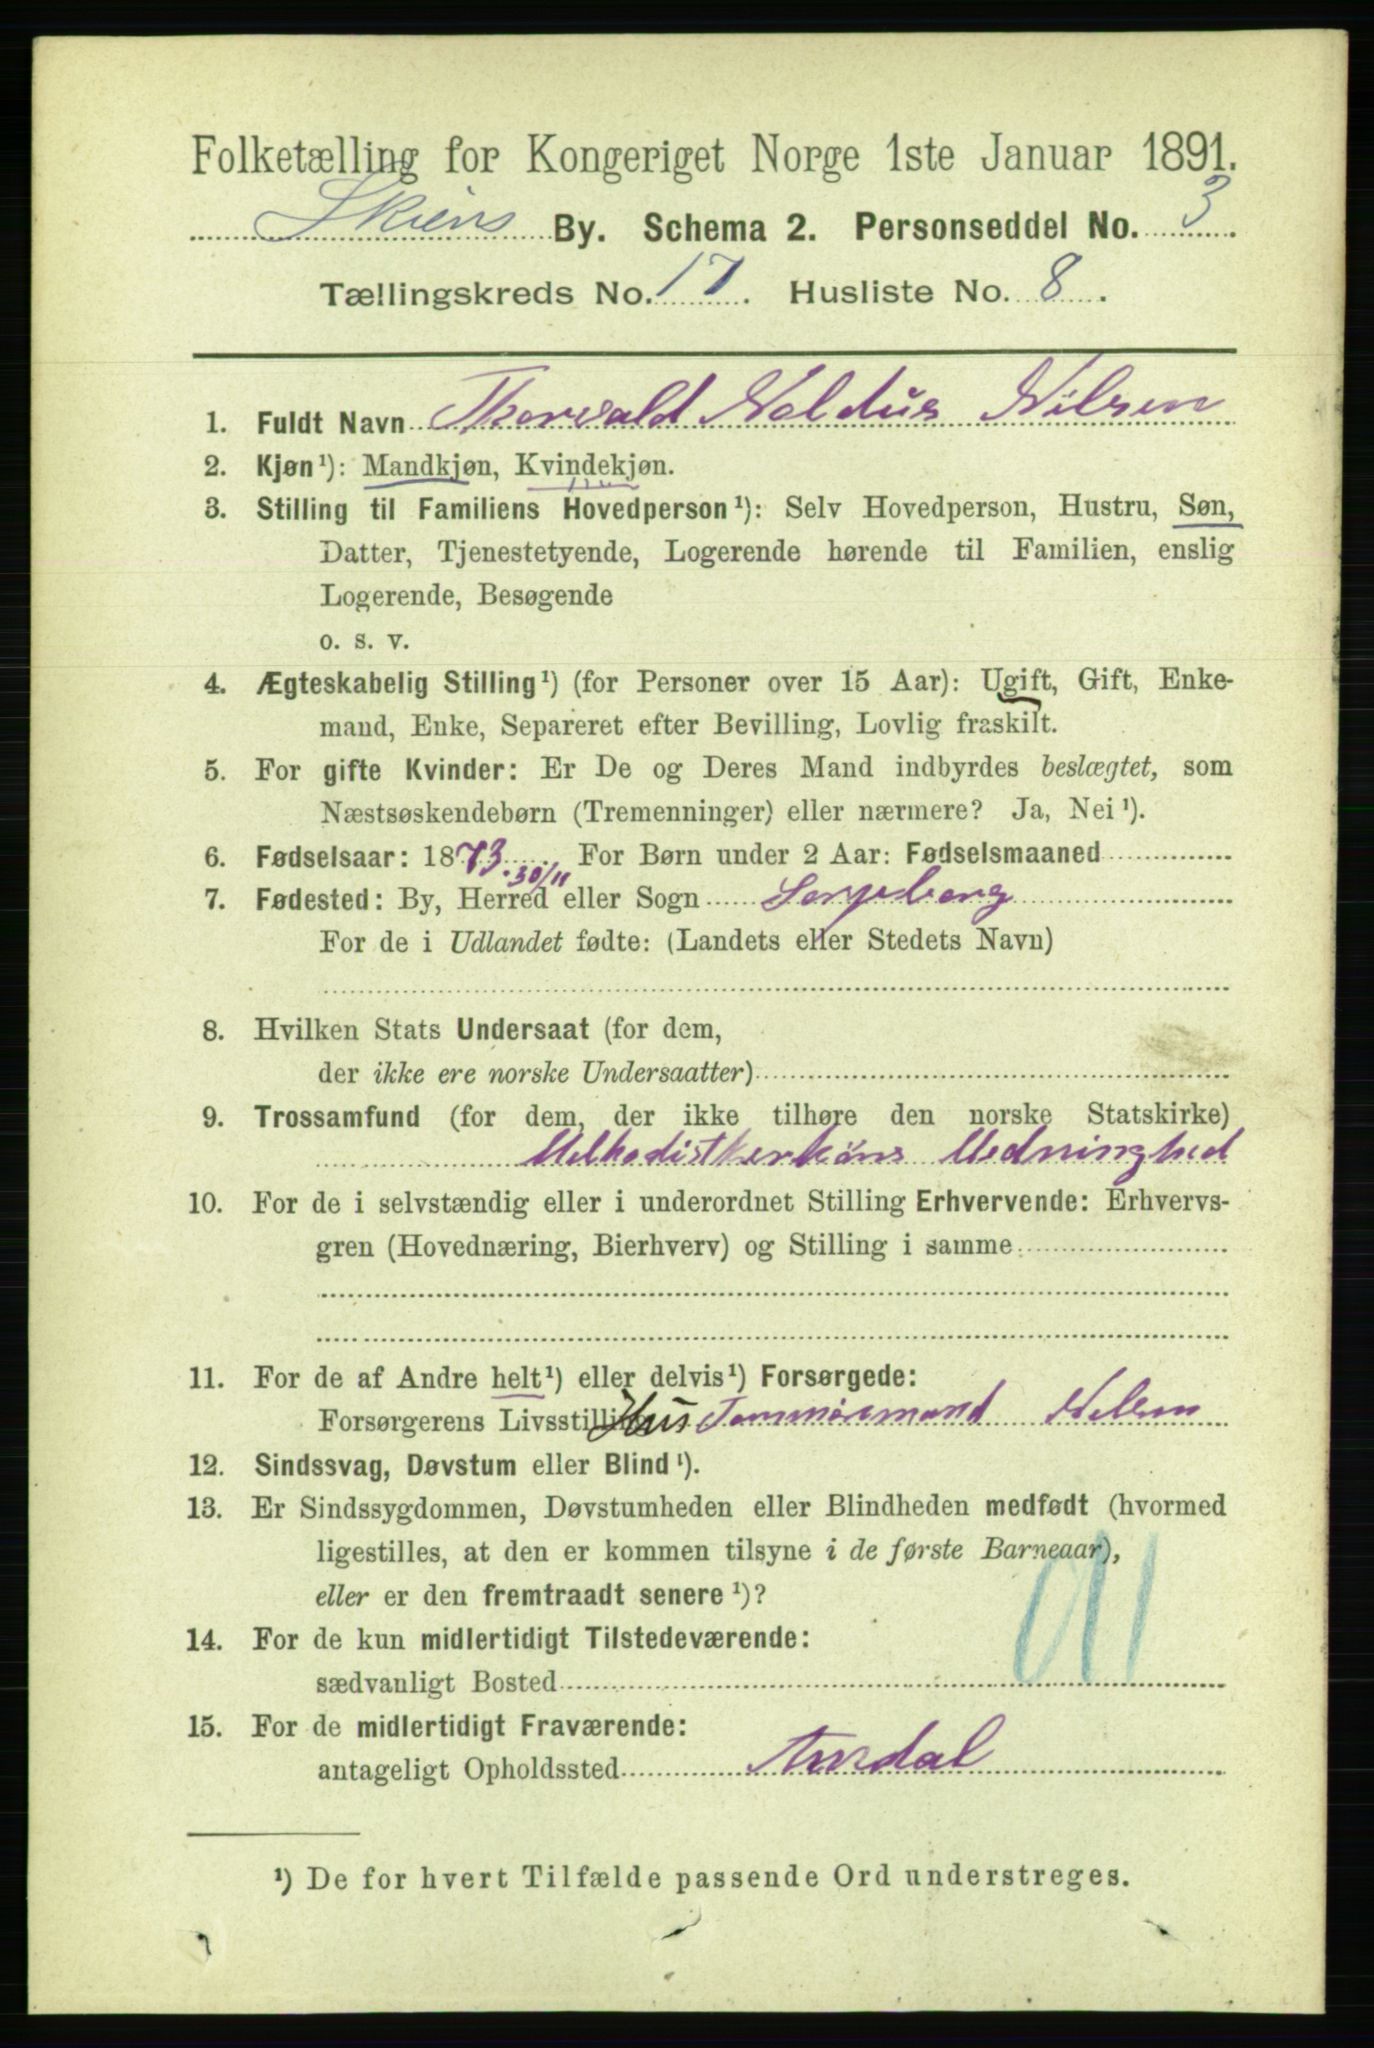 Folketælling for Kongeriget Norge 1ste Januar 1891.
Skiens By. Schema 2. Personseddel No. 3.
Tællingskreds No. 17. Husliste No. 8.
1. Fuldt Navn Thorvald Noldus Nilsen
2. Kjøn¹): Mandkjøn, Kvindekjøn.
3. Stilling til Familiens Hovedperson¹): Selv Hovedperson, Hustru, Søn,
Datter, Tjenestetyende, Logerende hørende til Familien, enslig
Logerende, Besøgende
o. s. v.
4. Ægteskabelig Stilling¹) (for Personer over 15 Aar): Ugift, Gift, Enke-
mand, Enke, Separeret efter Bevilling, Lovlig fraskilt.
5. For gifte Kvinder: Er De og Deres Mand indbyrdes beslægtet, som
Næstsøskendebørn (Tremenninger) eller nærmere? Ja, Nei¹).
6. Fødselsaar: 1873. 30/11 For Børn under 2 Aar: Fødselsmaaned
7. Fødested: By, Herred eller Sogn Sarpsborg
For de i Udlandet fødte: (Landets eller Stedets Navn)
8. Hvilken Stats Undersaat (for dem,
der ikke ere norske Undersaatter)
9. Trossamfund (for dem, der ikke tilhøre den norske Statskirke)
Methodistkerkens Medninghed
10. For de i selvstændig eller i underordnet Stilling Erhvervende: Erhvervs-
gren (Hovednæring, Bierhverv) og Stilling i samme
11. For de af Andre helt¹) eller delvis¹) Forsørgede:
Forsørgerens Livsstilling Hus Tømmermand Nilsen
12. Sindssvag, Døvstum eller Blind¹).
13. Er Sindssygdommen, Døvstumheden eller Blindheden medfødt (hvormed
ligestilles, at den er kommen tilsyne i de første Barneaar),
eller er den fremtraadt senere¹)?
14. For de kun midlertidigt Tilstedeværende:
sædvanligt Bosted
15. For de midlertidigt Fraværende:
antageligt Opholdssted Aurdal
¹) De for hvert Tilfælde passende Ord understreges.